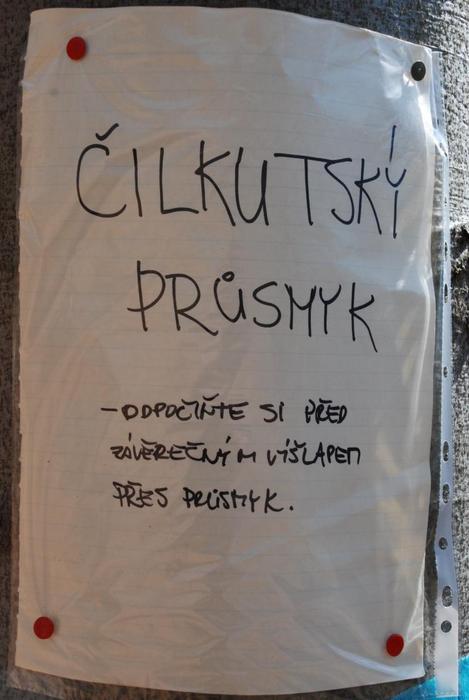 ČILKUTSKÝ
PRŮSMYK
-ODPOČIŇTE SI PŘED
ZÁVĚREČNÝM VÝŠLAPEM
PŘES PRŮSMYK.